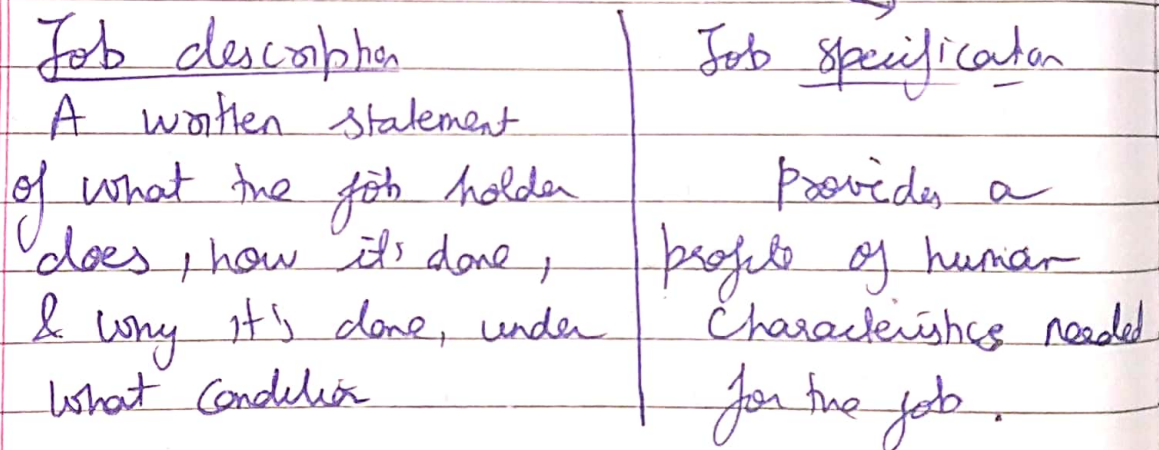 Job description
A written statement
of what the job holder
does, how it's done,
& why it's done, under
what condition
Job specification
Provides a
profile of human
characteristics needed
for the job.